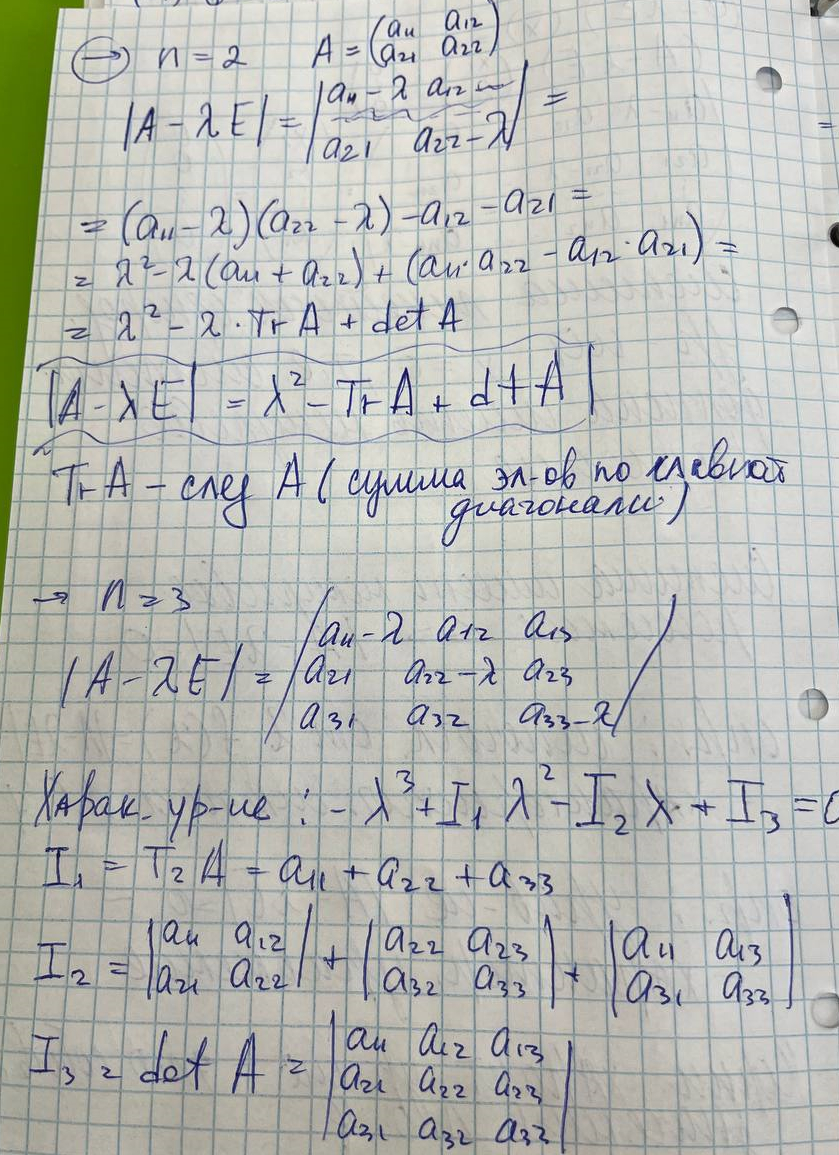 → n = 2 A = (a11 a12
a21 a22)
|A - λE| = |a11 - λ a12
a21 a22 - λ| =
= (a11 - λ)(a22 - λ) - a12 - a21 =
= λ² - λ(a11 + a22) + (a11 · a22 - a12 · a21) =
= λ² - λ · Tr A + det A
|A - λE| = λ² - Tr A + dt A
Tr A - след A (сумма эл-ов по главной
диагонали)
→ n = 3
|A - λE| = |a11 - λ a12 a13
a21 a22 - λ a23
a31 a32 a33 - λ|
Харак. ур-ие : - λ³ + I1 λ² - I2 λ + I3 = 0
I1 = Tr A = a11 + a22 + a33
I2 = |a11 a12
a21 a22| + |a22 a23
a32 a33| + |a11 a13
a31 a33|
I3 = det A = |a11 a12 a13
a21 a22 a23
a31 a32 a32|